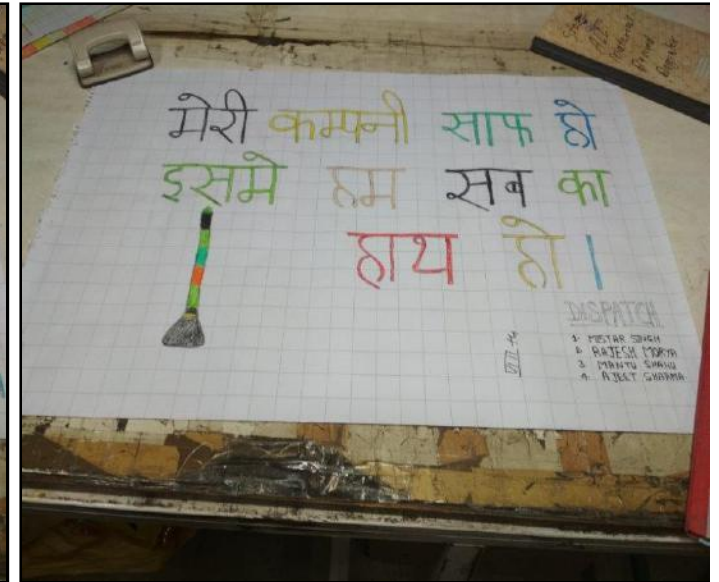 मेरी कम्पनी साफ हो
इसमे हम सब का
हाथ हो ।
DISPATCH
1. MISTAR SINGH
2. RAJESH MORYA
3. MANTU SHAHU
4. AJEET SHARMA